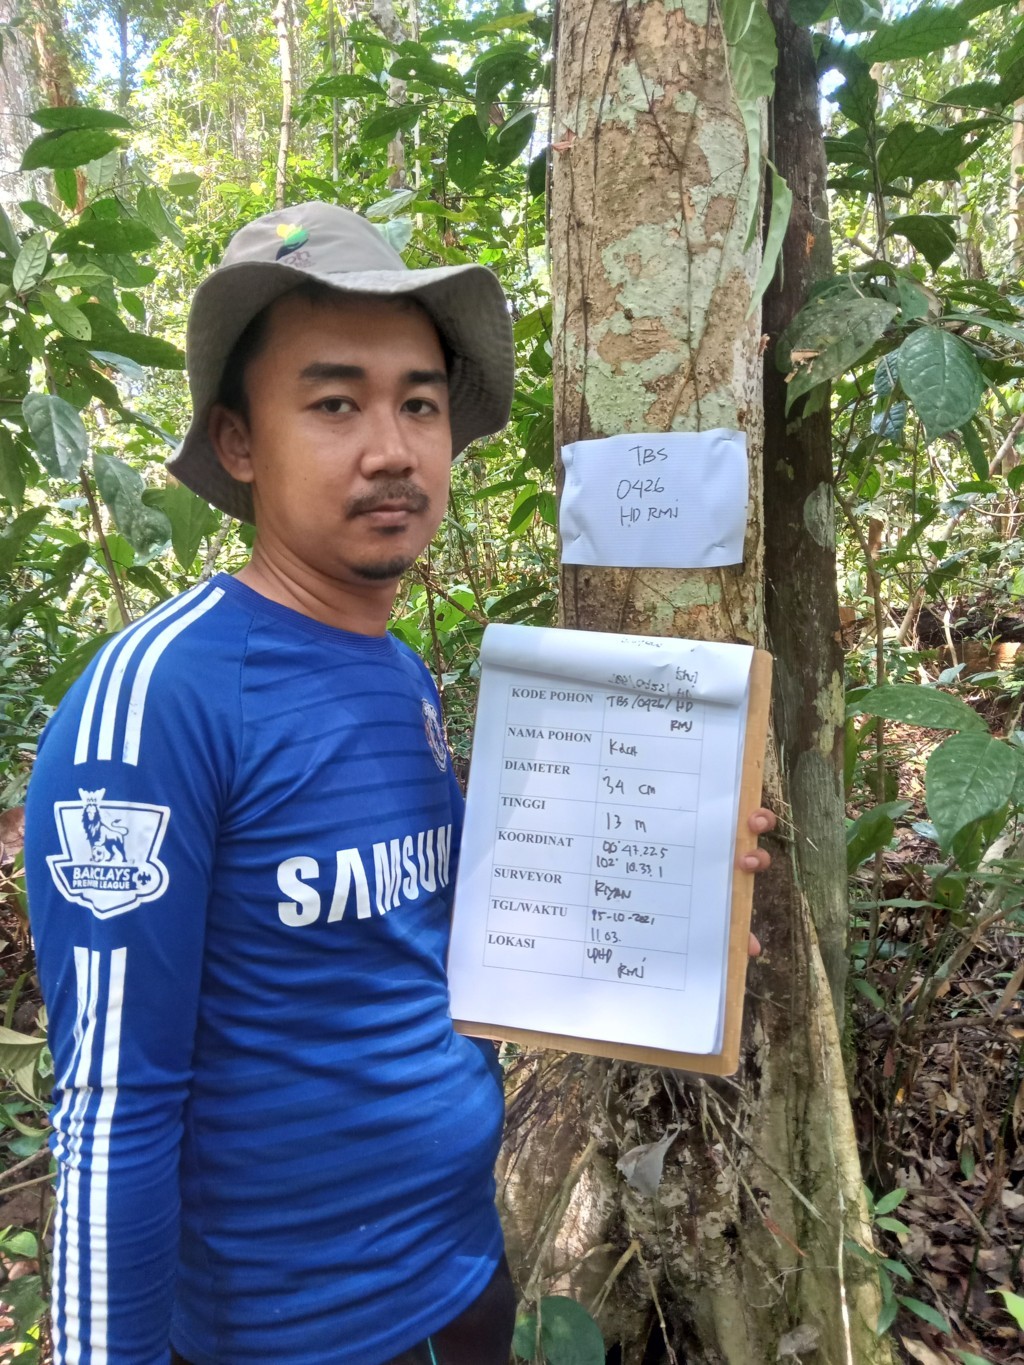 TBS
0426
HD RMJ
KODE POHON TBS/0426/HD
RMJ
NAMA POHON
DIAMETER 34 cm
TINGGI 13 m
KOORDINAT 00° 47.225
102° 10.33.1
SURVEYOR
TGL/WAKTU 15-10-2021
11 03.
LOKASI LPHD
RMJ
SAMSUN
BARCLAYS
PREMIER LEAGUE